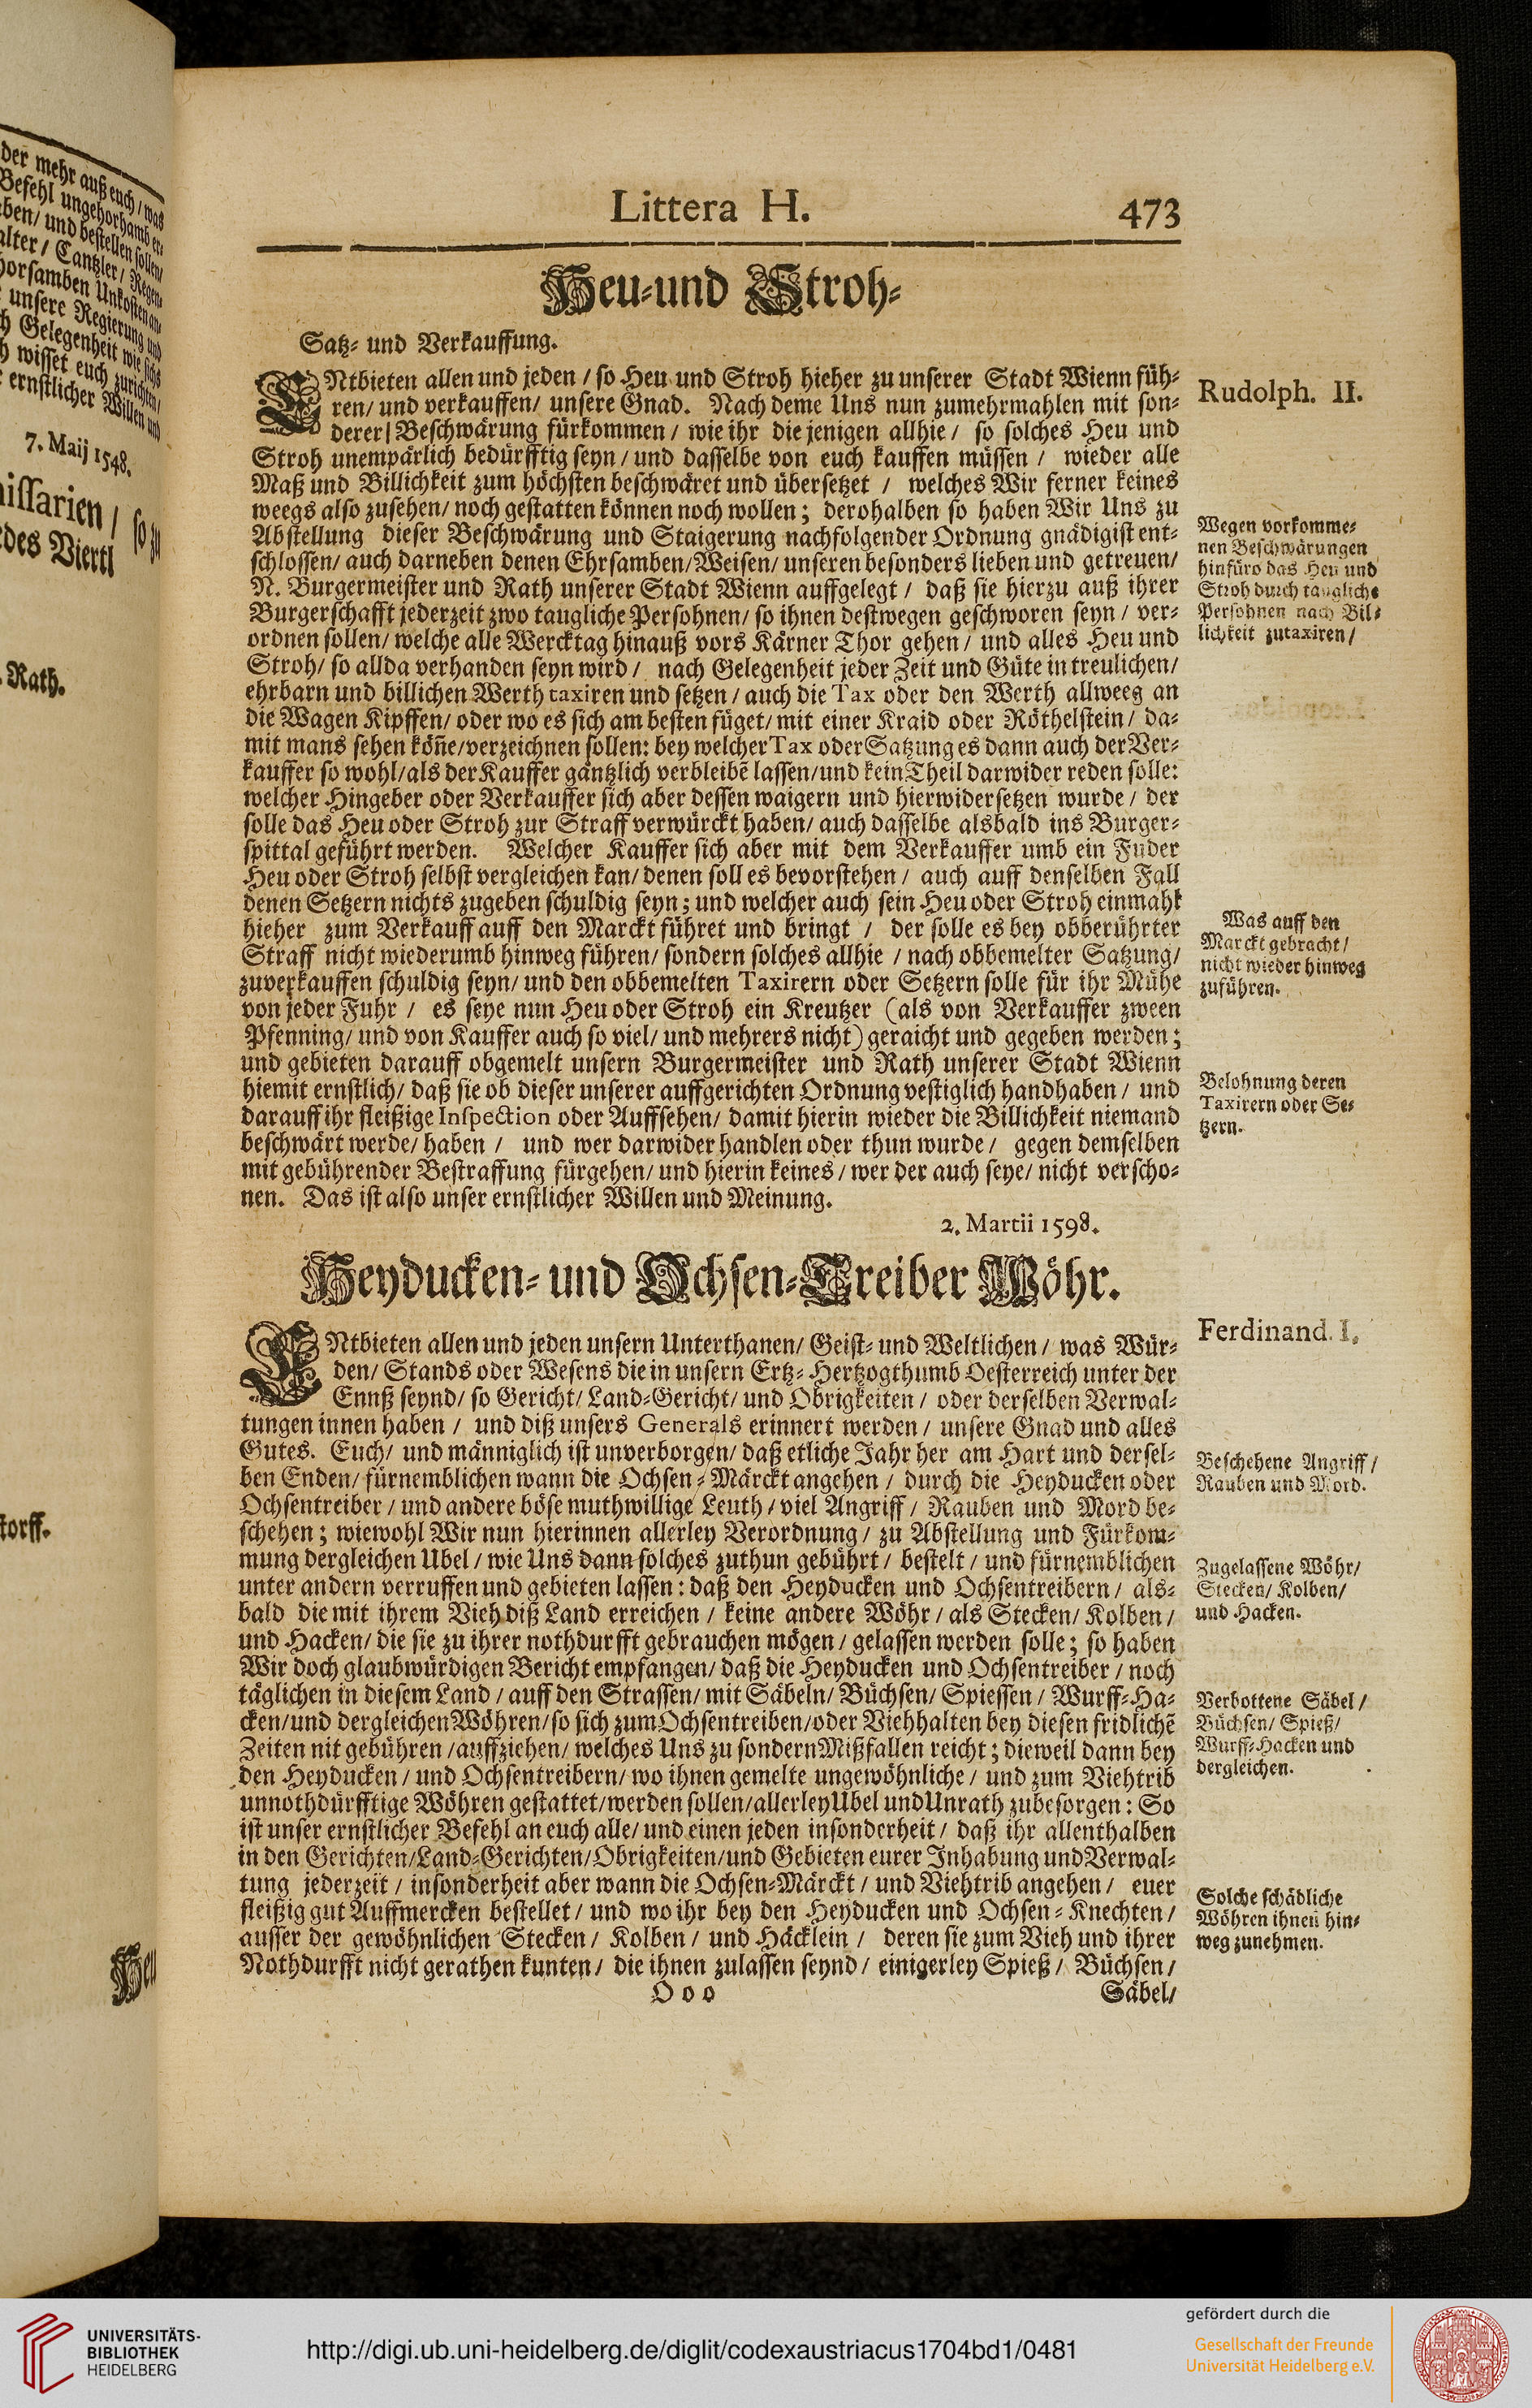 der mehr auß euch / was
Befehl ungehorhamb er-
ben / und bestellen sollen/
alter / Cantzler / Regen-
horsamben Unkosten an-
unsere Regierung und
h Gelegenheit wie sichs
wisset euch zurichten/
ernstlicher Willen und
7. Maij 1548.
missarien / so zu
des Viertl
Rath.
torff.
Heu
Littera H. 473
Heu- und Stroh-
Satz- und Verkauffung.
ENtbieten allen und jeden / so Heu und Stroh hieher zu unserer Stadt Wienn füh-
ren/ und verkauffen/ unsere Gnad. Nach deme Uns nun zumehrmahlen mit son-
derer Beschwärung fürkommen / wie ihr die jenigen allhie / so solches Heu und
Stroh unempärlich bedürfftig seyn / und dasselbe von euch kauffen müssen / wieder alle
Maß und Billichkeit zum höchsten beschwäret und übersetzet / welches Wir ferner keines
weegs also zusehen/ noch gestatten können noch wollen; derohalben so haben Wir Uns zu
Abstellung dieser Beschwärung und Staigerung nachfolgender Ordnung gnädigist ent-
schlossen/ auch darneben denen Ehrsamben/ Weisen/ unseren besonders lieben und getreuen/
N. Burgermeister und Rath unserer Stadt Wienn auffgelegt / daß sie hierzu auß ihrer
Burgerschafft jederzeit zwo taugliche Persohnen/ so ihnen destwegen geschworen seyn / ver-
ordnen sollen/ welche alle Wercktag hinauß vors Kärner Thor gehen / und alles Heu und
Stroh/ so allda verhanden seyn wird / nach Gelegenheit jeder Zeit und Güte in treulichen/
ehrbarn und billichen Werth taxiren und setzen / auch die Tax oder den Werth allweeg an
die Wagen Kipffen/ oder wo es sich am besten füget/ mit einer Kraid oder Röthelstein / da-
mit mans sehen köñe/ verzeichnen sollen: bey welcher Tax oder Satzung es dann auch der Ver-
kauffer so wohl/ als der Kauffer gäntzlich verbleibẽ lassen/ und kein Theil darwider reden solle:
welcher Hingeber oder Verkauffer sich aber dessen waigern und hierwidersetzen wurde / der
solle das Heu oder Stroh zur Straff verwürckt haben/ auch dasselbe alsbald ins Burger-
spittal geführt werden. Welcher Kauffer sich aber mit dem Verkauffer umb ein Fuder
Heu oder Stroh selbst vergleichen kan/ denen soll es bevorstehen / auch auff denselben Fall
denen Setzern nichts zugeben schuldig seyn; und welcher auch sein Heu oder Stroh einmahl
hieher zum Verkauff auff den Marckt führet und bringt / der solle es bey obberührter
Straff nicht wiederumb hinweg führen/ sondern solches allhie / nach obbemelter Satzung/
zuverkauffen schuldig seyn/ und den obbemelten Taxirern oder Setzern solle für ihr Mühe
von jeder Fuhr / es seye nun Heu oder Stroh ein Kreutzer (als von Verkauffer zween
Pfenning/ und von Kauffer auch so viel/ und mehrers nicht) geraicht und gegeben werden;
und gebieten darauff obgemelt unsern Burgermeister und Rath unserer Stadt Wienn
hiemit ernstlich/ daß sie ob dieser unserer auffgerichten Ordnung vestiglich handhaben / und
darauff ihr fleißige Inspection oder Auffsehen/ damit hierin wieder die Billichkeit niemand
beschwärt werde/ haben / und wer darwider handlen oder thun wurde / gegen demselben
mit gebührender Bestraffung fürgehen/ und hierin keines / wer der auch seye/ nicht verscho-
nen. Das ist also unser ernstlicher Willen und Meinung.
2. Martii 1598.
Rudolph. II.
Wegen vorkomme-
nen Beschwärungen
hinfüro das Heu und
Stroh durch taugliche
Persohnen nach Bil-
lichkeit zutaxiren /
Was auff den
Marckt gebracht /
nicht wieder hinweg
zuführen.
Belohnung deren
Taxirern oder Se-
tzern.
Heyducken- und Ochsen-Treiber Wöhr.
ENtbieten allen und jeden unsern Unterthanen/ Geist- und Weltlichen / was Wür-
den/ Stands oder Wesens die in unsern Ertz-Hertzogthumb Oesterreich unter der
Ennß seynd/ so Gericht/ Land-Gericht/ und Obrigkeiten / oder derselben Verwal-
tungen innen haben / und diß unsers Generals erinnert werden / unsere Gnad und alles
Gutes. Euch/ und männiglich ist unverborgen/ daß etliche Jahr her am Hart und dersel-
ben Enden/ fürnemblichen wann die Ochsen-Märckt angehen / durch die Heyducken oder
Ochsentreiber / und andere böse muthwillige Leuth / viel Angriff / Rauben und Mord be-
schehen; wiewohl Wir nun hierinnen allerley Verordnung / zu Abstellung und Fürkom-
mung dergleichen Ubel / wie Uns dann solches zuthun gebührt / bestelt / und fürnemblichen
unter andern verruffen und gebieten lassen: daß den Heyducken und Ochsentreibern / als-
bald die mit ihrem Vieh diß Land erreichen / keine andere Wöhr / als Stecken/ Kolben /
und Hacken/ die sie zu ihrer nothdurfft gebrauchen mögen / gelassen werden solle; so haben
Wir doch glaubwürdigen Bericht empfangen/ daß die Heyducken und Ochsentreiber / noch
täglichen in diesem Land / auff den Strassen/ mit Säbeln/ Büchsen/ Spiessen / Wurff-Ha-
cken/ und dergleichen Wöhren/ so sich zum Ochsentreiben/ oder Viehhalten bey diesen fridlichẽ
Zeiten nit gebühren / auffziehen/ welches Uns zu sondern Mißfallen reicht; dieweil dann bey
den Heyducken / und Ochsentreibern/ wo ihnen gemelte ungewöhnliche / und zum Viehtrib
unnothdürfftige Wöhren gestattet/ werden sollen/ allerley Ubel und Unrath zubesorgen: So
ist unser ernstlicher Befehl an euch alle/ und einen jeden insonderheit / daß ihr allenthalben
in den Gerichten/ Land-Gerichten/ Obrigkeiten/ und Gebieten eurer Inhabung und Verwal-
tung jederzeit / insonderheit aber wann die Ochsen-Märckt / und Viehtrib angehen / euer
fleißig gut Auffmercken bestellet / und wo ihr bey den Heyducken und Ochsen-Knechten /
ausser der gewöhnlichen Stecken / Kolben / und Häcklein / deren sie zum Vieh und ihrer
Nothdurfft nicht gerathen kunten / die ihnen zulassen seynd / einigerley Spieß / Büchsen /
Ooo Säbel/
Ferdinand. I.
Beschehene Angriff /
Rauben und Mord.
Zugelassene Wöhr/
Stecken/ Kolben/
und Hacken.
Verbottene Säbel /
Büchsen/ Spieß/
Wurff-Hacken und
dergleichen.
Solche schädliche
Wöhren ihnen hin-
weg zunehmen.
UNIVERSITÄTS-
BIBLIOTHEK
HEIDELBERG
http://digi.ub.uni-heidelberg.de/diglit/codexaustriacus1704bd1/0481
gefördert durch die
Gesellschaft der Freunde
Universität Heidelberg e.V.